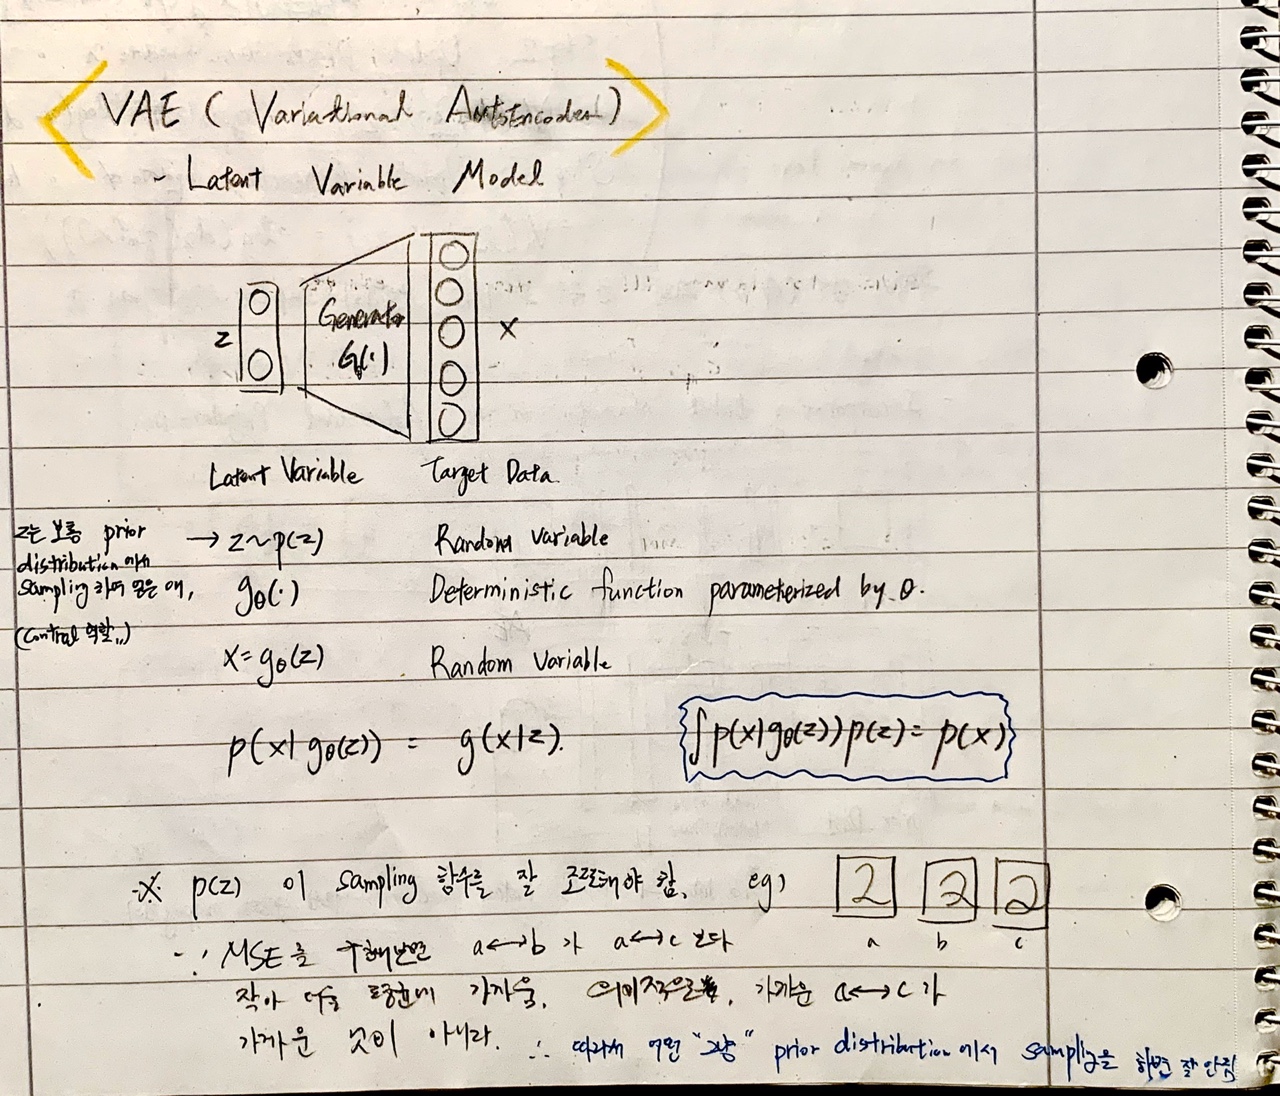 VAE ( Variational AutoEncoder )
~ Latent Variable Model
z
Generator
G(·)
x
Latent Variable
Target Data.
z는 보통 prior
distribution에서
sampling 하여 얻은 애,
(control 역할..)
→ z~p(z) Random variable
gθ(·) Deterministic function parameterized by θ.
x = gθ(z) Random Variable
p(x|gθ(z)) = g(x|z).
∫p(x|gθ(z))p(z) = p(x)
※ p(z) 이 sampling 함수를 잘 조절해야 함. eg)
2 2 2
a b c
∵ MSE를 구해보면 a↔b 가 a↔c 보다
작아 평균에 가까움. 의미적으로, 가까운 a↔c 가
가까운 것이 아니라.
∴ 따라서 어떤 "그냥" prior distribution에서 sampling을 하면 잘 안됨